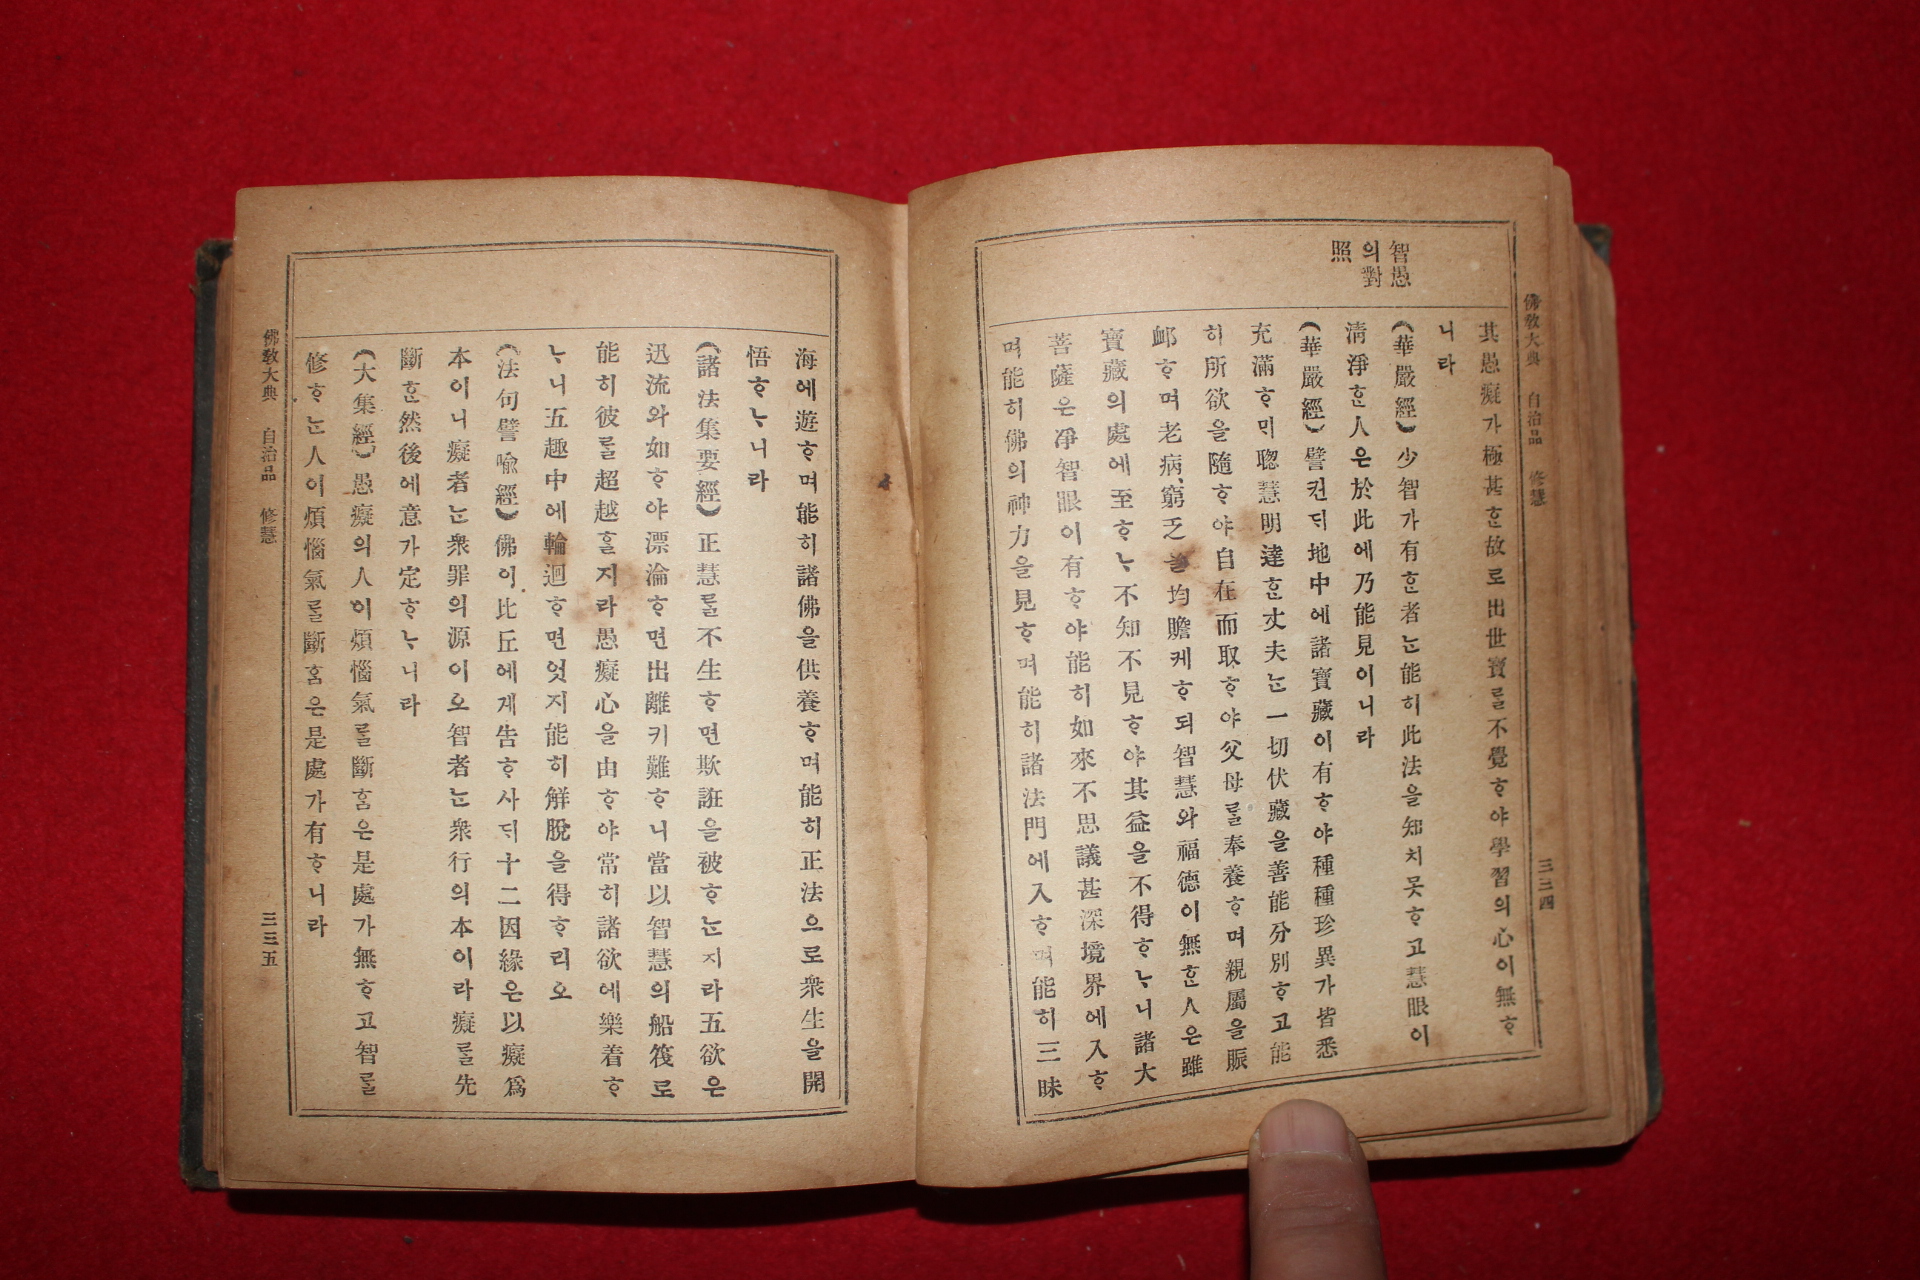 佛敎大典 自治品 修慧 三三四
智愚
의對
照
其愚癡가極甚ᄒᆞᆫ故로出世寶를不覺ᄒᆞ야學習의心이無ᄒᆞ
니라
(華嚴經)少智가有ᄒᆞᆫ者ᄂᆞᆫ能히此法을知치못ᄒᆞ고慧眼이
淸淨ᄒᆞᆫ人은於此에乃能見이니라
(華嚴經)譬컨ᄃᆡ地中에諸寶藏이有ᄒᆞ야種種珍異가皆悉
充滿ᄒᆞᄆᆡ聰慧明達ᄒᆞᆫ丈夫ᄂᆞᆫ一切伏藏을善能分別ᄒᆞ고能
히所欲을隨ᄒᆞ야自在而取ᄒᆞ야父母를奉養ᄒᆞ며親屬을賑
卹ᄒᆞ며老病、窮乏을均贍케ᄒᆞ되智慧와福德이無ᄒᆞᆫ人은雖
寶藏의處에至ᄒᆞᄂᆞ不知不見ᄒᆞ야其益을不得ᄒᆞᄂᆞ니諸大
菩薩은淨智眼이有ᄒᆞ야能히如來不思議甚深境界에入ᄒᆞ
며能히佛의神力을見ᄒᆞ며能히諸法門에入ᄒᆞ며能히三昧
海에遊ᄒᆞ며能히諸佛을供養ᄒᆞ며能히正法으로衆生을開
悟ᄒᆞᄂᆞ니라
(諸法集要經)正慧를不生ᄒᆞ면欺誑을被ᄒᆞᄂᆞᆫ지라五欲은
迅流와如ᄒᆞ야漂淪ᄒᆞ면出離키難ᄒᆞ니當以智慧의船筏로
能히彼를超越ᄒᆞᆯ지라愚癡心을由ᄒᆞ야常히諸欲에樂着ᄒᆞ
ᄂᆞ니五趣中에輪迴ᄒᆞ면엇지能히解脫을得ᄒᆞ리오
(法句譬喩經)佛이比丘에게告ᄒᆞ사ᄃᆡ十二因緣은以癡爲
本이니癡者ᄂᆞᆫ衆罪의源이오智者ᄂᆞᆫ衆行의本이라癡를先
斷ᄒᆞᆫ然後에意가定ᄒᆞᄂᆞ니라
(大集經)愚癡의人이煩惱氣를斷ᄒᆞᆷ은是處가無ᄒᆞ고智를
修ᄒᆞᄂᆞᆫ人이煩惱氣를斷ᄒᆞᆷ은是處가有ᄒᆞ니라
佛敎大典 自治品 修慧 三三五